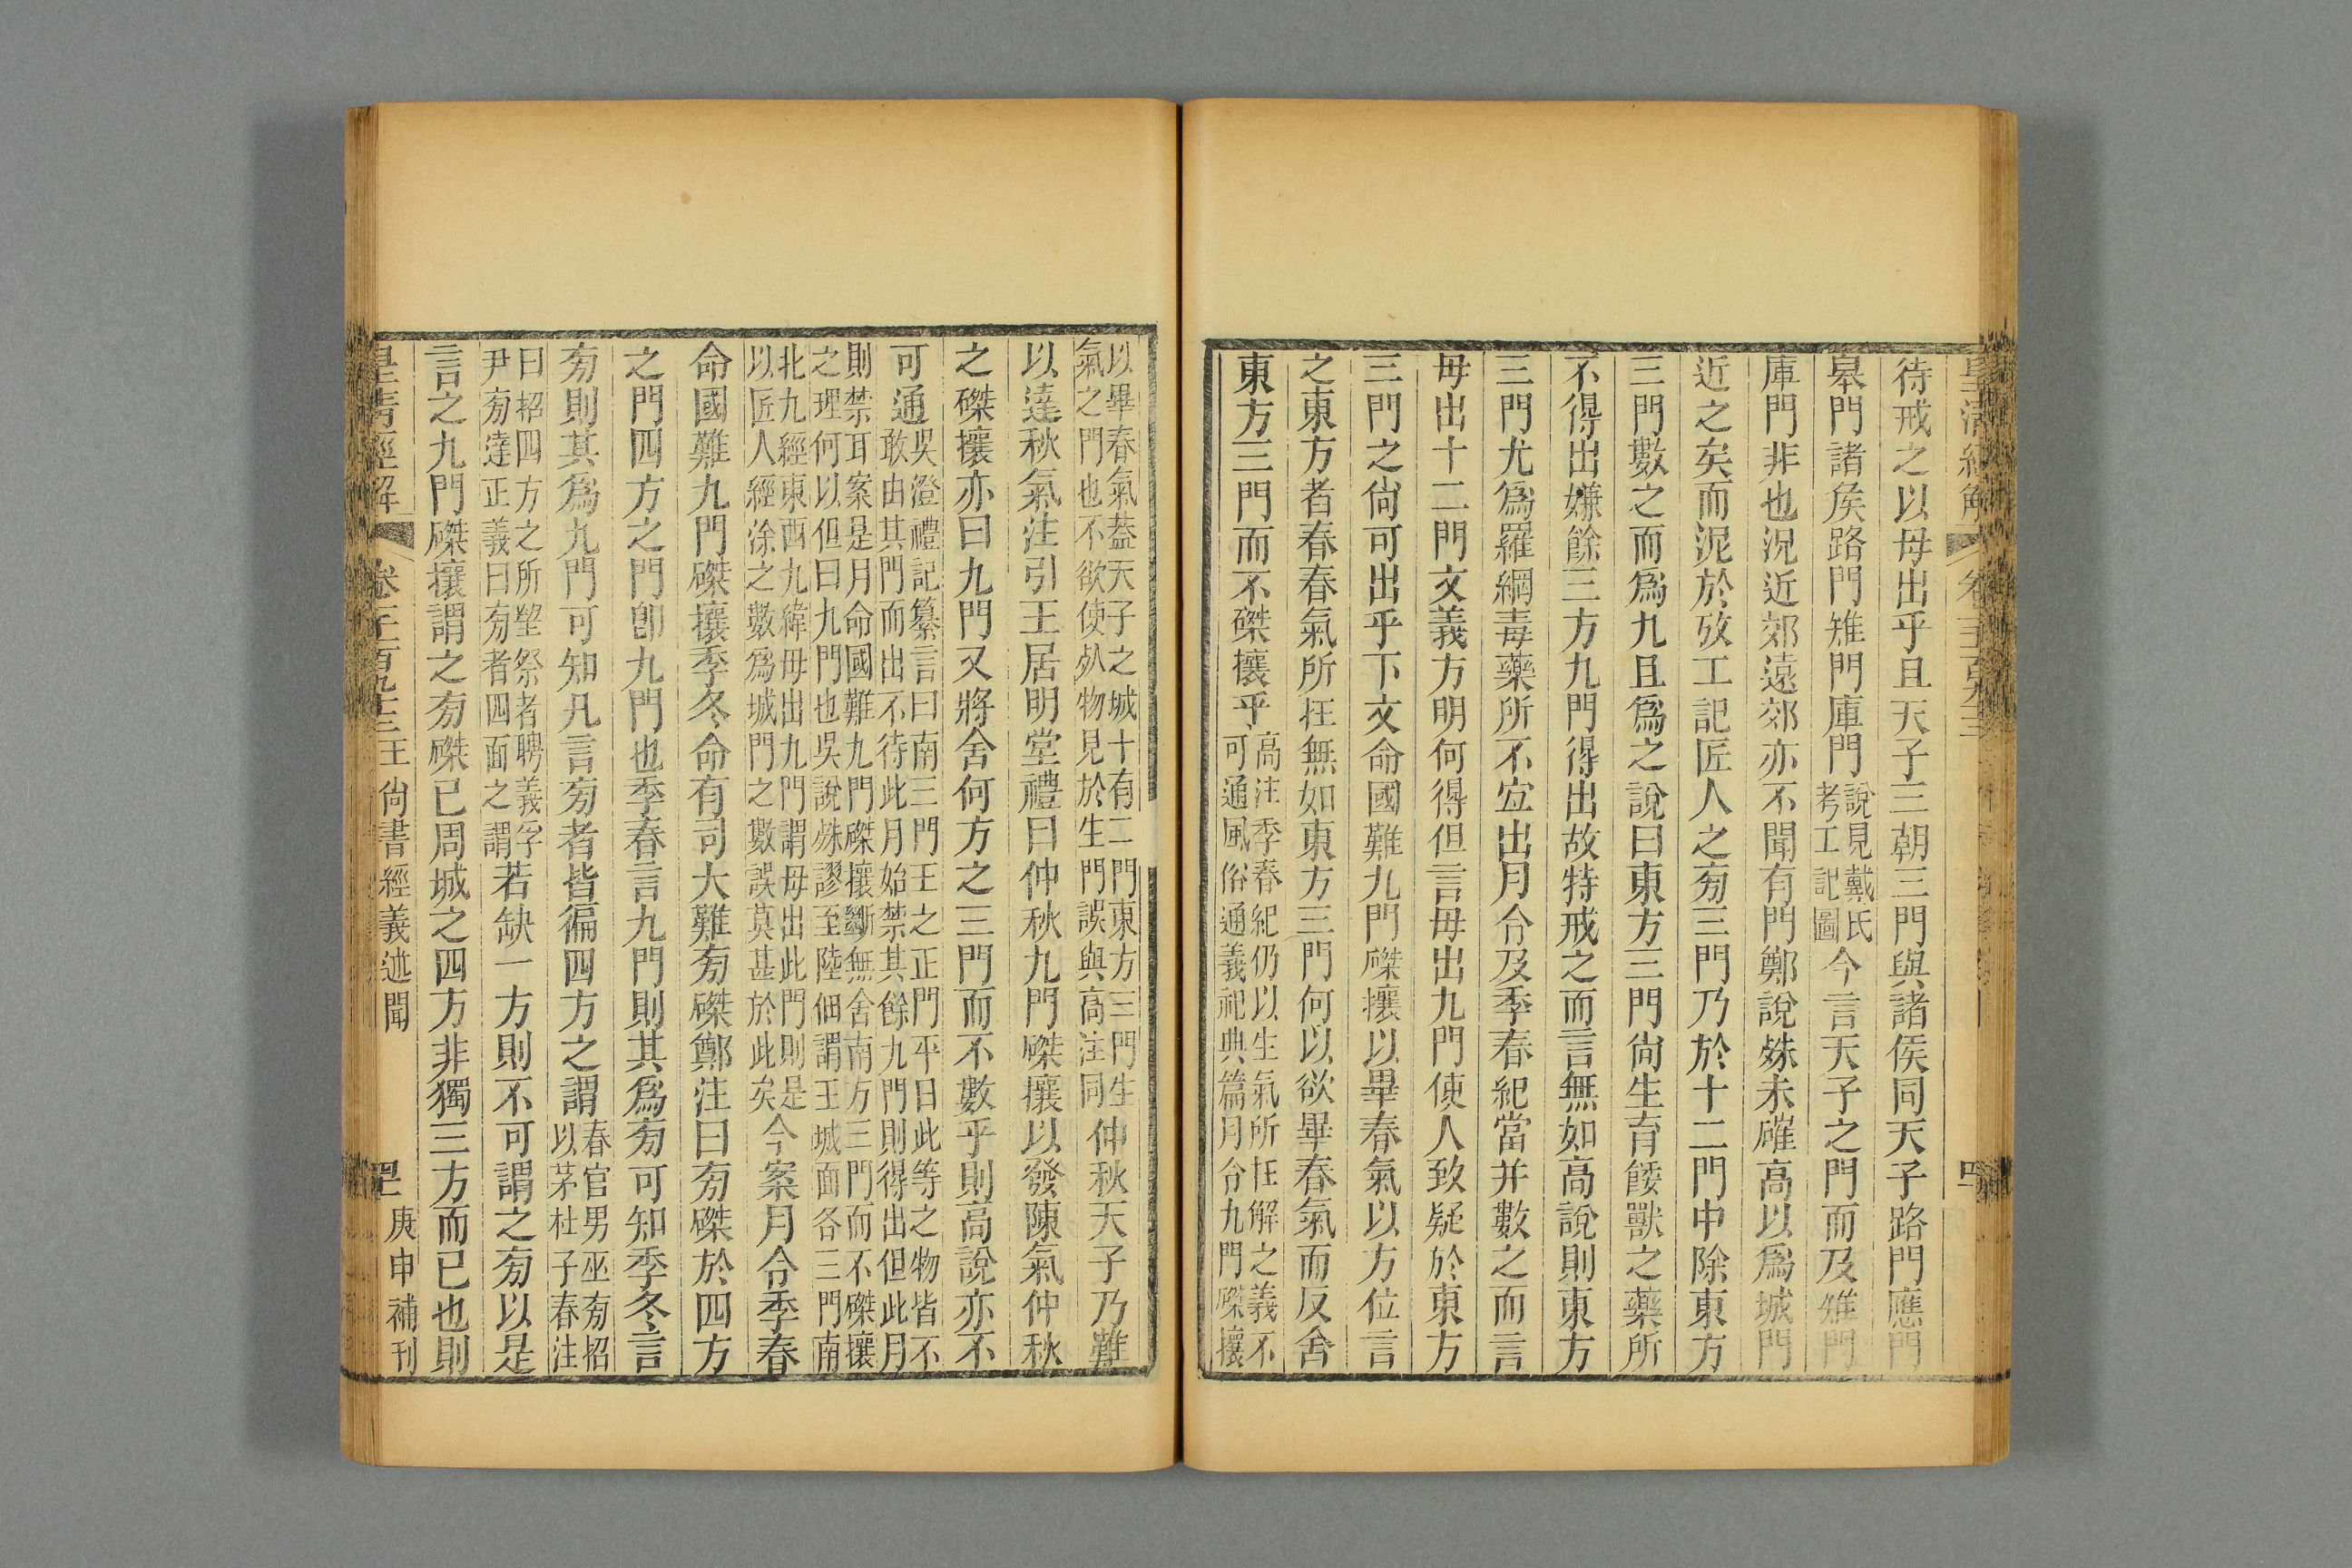 皇清經解 卷
待戒之以毋出乎且天子三朝三門與諸侯同天子路門應門
皋門諸矦路門雉門庫門說見戴氏考工記圖今言天子之門而及雉門
庫門非也況近郊遠郊亦不聞有門鄭說殊未確高以爲城門
近之矣而泥於攷工記匠人之㫄三門乃於十二門中除東方
三門數之而爲九且爲之說曰東方三門尙生育餧獸之藥所
不得出嫌餘三方九門得出故特戒之而言無如高說則東方
三門尤爲羅網毒藥所不宜出月令及季春紀當并數之而言
毋出十二門文義方明何得但言毋出九門使人致疑於東方
三門之尙可出乎下文命國難九門磔攘以畢春氣以方位言
之東方者春春氣所在無如東方三門何以欲畢春氣而反舍
東方三門而不磔攘乎高注季春紀仍以生氣所在解之義不可通風俗通義祀典篇月令九門磔攘
以畢春氣葢天子之城十有二門東方三門生氣之門也不欲使𣦸物見於生門誤與高注同仲秋天子乃難
以達秋氣注引王居明堂禮曰仲秋九門磔攘以發陳氣仲秋
之磔攘亦曰九門又將舍何方之三門而不數乎則高說亦不
可通吳澄禮記纂言曰南三門王之正門平日此等之物皆不敢由其門而出不待此月始禁其餘九門則得出但此月
則禁耳案是月命國難九門磔攘斷無舍南方三門而不磔攘之理何以但曰九門也吳說殊謬至陸佃謂王城面各三門南
北九經東西九緯毋出九門謂毋出此門則是以匠人經涂之數爲城門之數誤莫甚於此矣今案月令季春
命國難九門磔攘季冬命有司大難㫄磔鄭注曰㫄磔於四方
之門四方之門卽九門也季春言九門則其爲㫄可知季冬言
㫄則其爲九門可知凡言㫄者皆徧四方之謂春官男巫㫄招以茅杜子春注
曰招四方之所望祭者聘義孚尹㫄達正義曰㫄者四面之謂若缺一方則不可謂之㫄以是
言之九門磔攘謂之㫄磔已周城之四方非獨三方而已也則
皇清經解 卷 王尙書經義述聞 庚申補刊